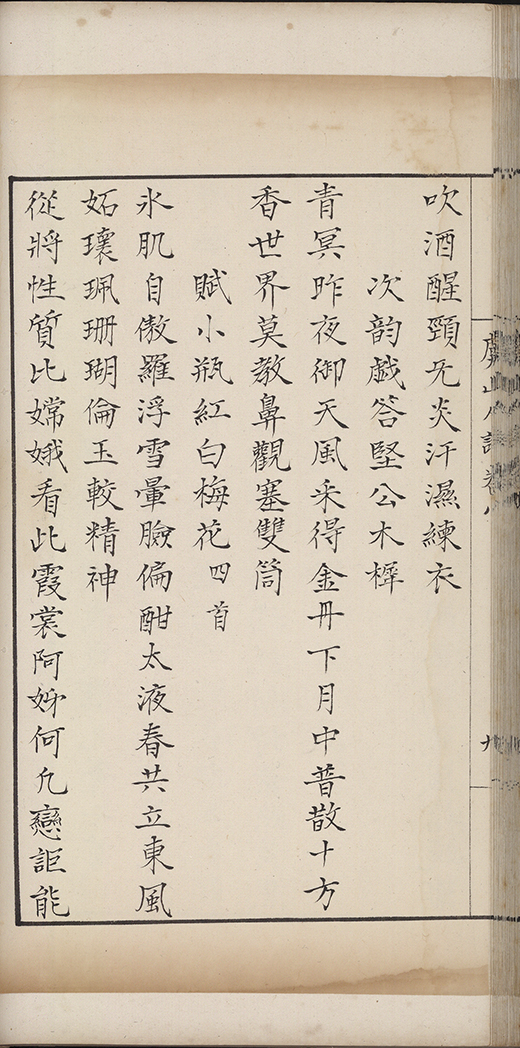 吹酒醒頸无炎汗濕練衣
次韵戲答堅公木樨
青冥昨夜御天風采得金丹下月中普散十方
香世界莫教鼻觀塞雙筒
賦小瓶紅白梅花四首
氷肌自傲羅浮雪暈臉偏酣太液春共立東風
妬瓌珮珊瑚倫玉較精神
從將性質比嫦娥看此霞裳阿姊何兊戀詎能
九